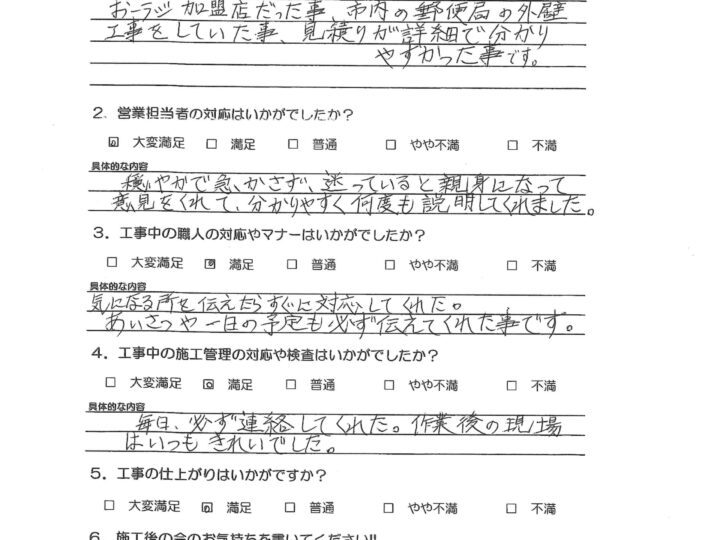 おーラジ加盟店だった事、市内の郵便局の外壁
工事をしていた事、見積りが詳細で分かり
やすかった事です。
2. 営業担当者の対応はいかがでしたか？
☑ 大変満足 □ 満足 □ 普通 □ やや不満 □ 不満
具体的な内容
穏やかで急かさず、迷っていると親身になって
意見をくれて、分かりやすく何度も説明してくれました。
3. 工事中の職人の対応やマナーはいかがでしたか？
□ 大変満足 ☑ 満足 □ 普通 □ やや不満 □ 不満
具体的な内容
気になる所を伝えたらすぐに対応してくれた。
あいさつや一日の予定も必ず伝えてくれた事です。
4. 工事中の施工管理の対応や検査はいかがでしたか？
□ 大変満足 ☑ 満足 □ 普通 □ やや不満 □ 不満
具体的な内容
毎日、必ず連絡してくれた。作業後の現場
はいつもきれいでした。
5. 工事の仕上がりはいかがですか？
□ 大変満足 ☑ 満足 □ 普通 □ やや不満 □ 不満
6. 施工後の今のお気持ちを書いてください!!